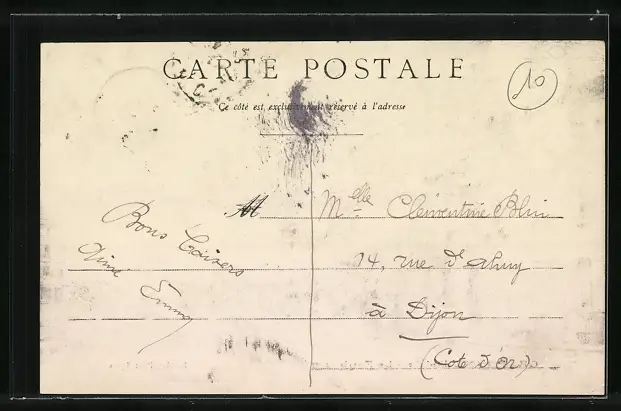 CARTE POSTALE
10
Ce côté est exclusivement réservé à l'adresse
M
Bons Baisers
Aimé
Emmy
Melle Clémentine Blin
14, rue d'Ahuy
à Dijon
(Cote d'Or)